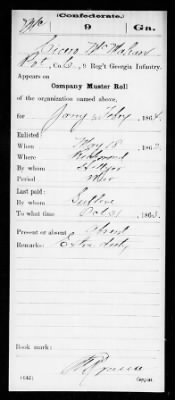 (Confederate.)
9 Ga.
Pvt., Co. E, 9 Reg't Georgia Infantry.
Appears on
Company Muster Roll
of the organization named above,
for Jany & Feby, 1864.
Enlisted:
When May 18, 186
Where Richmond
By whom
Period War
Last paid:
By whom
To what time Oct 31, 1863.
Present or absent Absent
Remarks: Extra duty
Book mark:
(642)
Copyist.